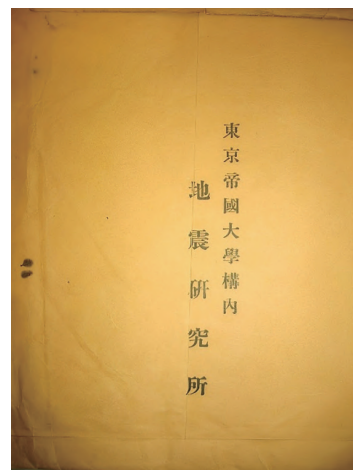 東京帝國大學構内
地震研究所